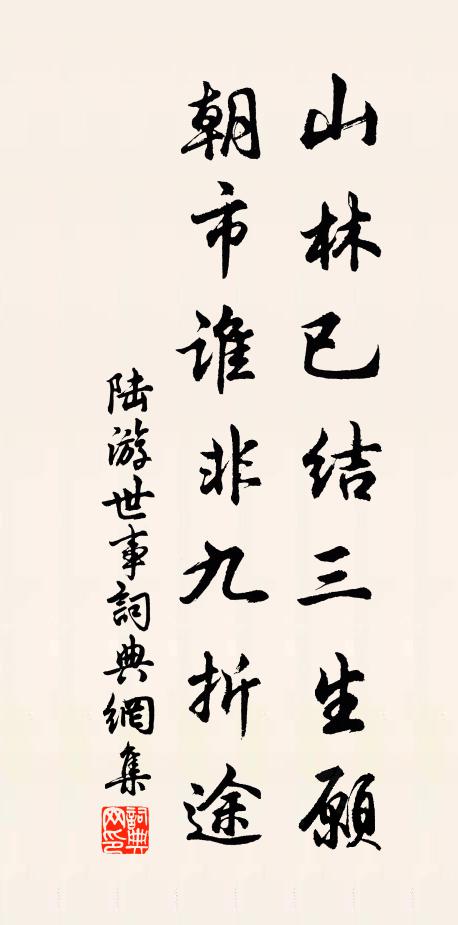 山林已结三生願
朝市谁非九折途
陆游世事詞典網集
詞典网印